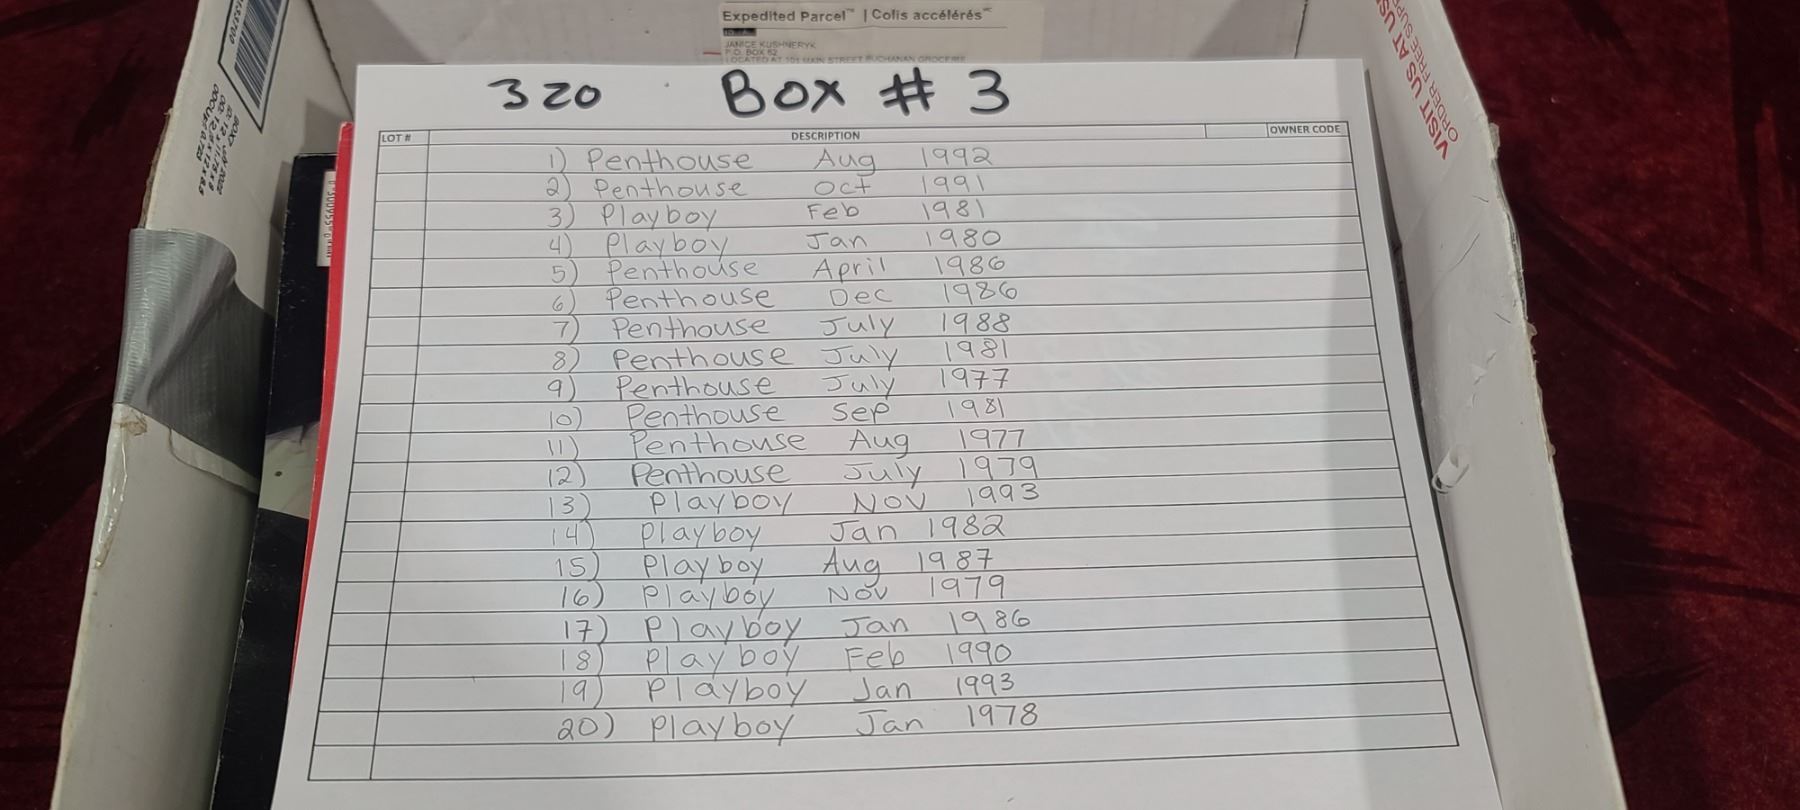 Expedited Parcel™ | Colis accélérés
JANICE KUSHNERYK
P.O. BOX 62
LOCATED AT 101 MAIN STREET BUCHANAN
VISIT US AT
ORDER FREE
320 BOX # 3
LOT # DESCRIPTION OWNER CODE
1) Penthouse Aug 1992
2) Penthouse Oct 1991
3) Playboy Feb 1981
4) Playboy Jan 1980
5) Penthouse April 1986
6) Penthouse Dec 1986
7) Penthouse July 1988
8) Penthouse July 1981
9) Penthouse July 1977
10) Penthouse Sep 1981
11) Penthouse Aug 1977
12) Penthouse July 1979
13) Playboy Nov 1993
14) Playboy Jan 1982
15) Playboy Aug 1987
16) Playboy Nov 1979
17) Playboy Jan 1986
18) Playboy Feb 1990
19) Playboy Jan 1993
20) Playboy Jan 1978